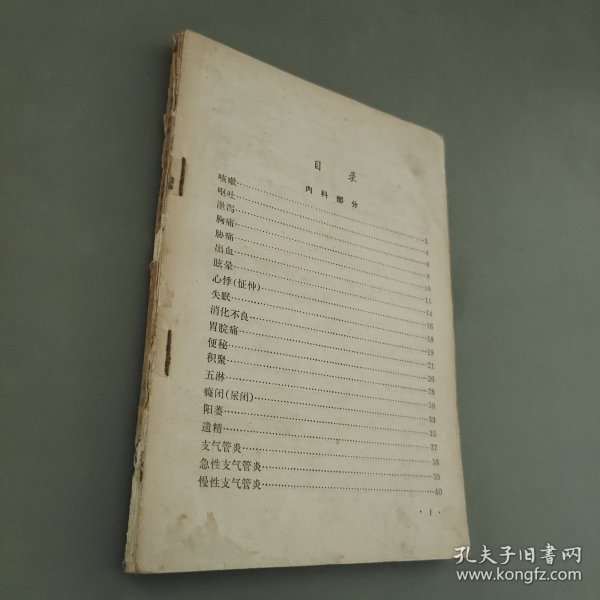 目录
内科部分
咳嗽……1
呕吐……4
泄泻……6
胸痛……8
胁痛……10
出血……11
眩晕……14
心悸(怔忡)……16
失眠……18
消化不良……19
胃脘痛……21
便秘……26
积聚……28
五淋……30
癃闭(尿闭)……33
阳萎……35
遗精……37
支气管炎……38
急性支气管炎……39
慢性支气管炎……40
·1·
孔夫子旧书网
www.kongfz.com